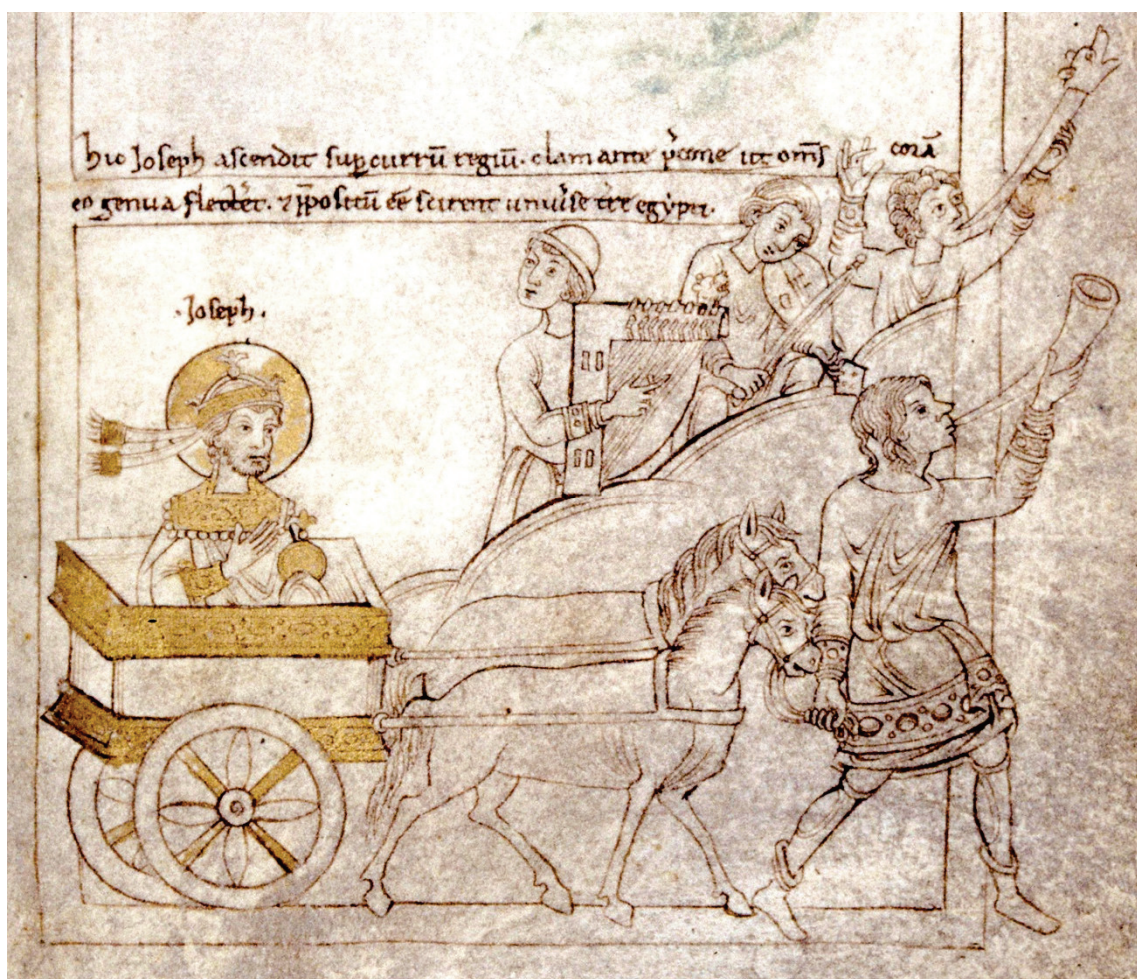 hic Joseph ascendit sup̲ currū regiū. clamante p̄cone ut om̄s corā
eo genua flecteret. ⁊ p̄positū ēē scirent uniu̓se tr̄e egypti.
.Joseph.